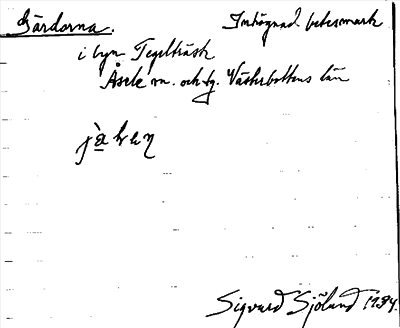 Gärdorna. Inhägnad betesmark
i byn Tegelträsk
Åsele sn. och tg. Västerbottens län
Sigvard Sjölund 1934.